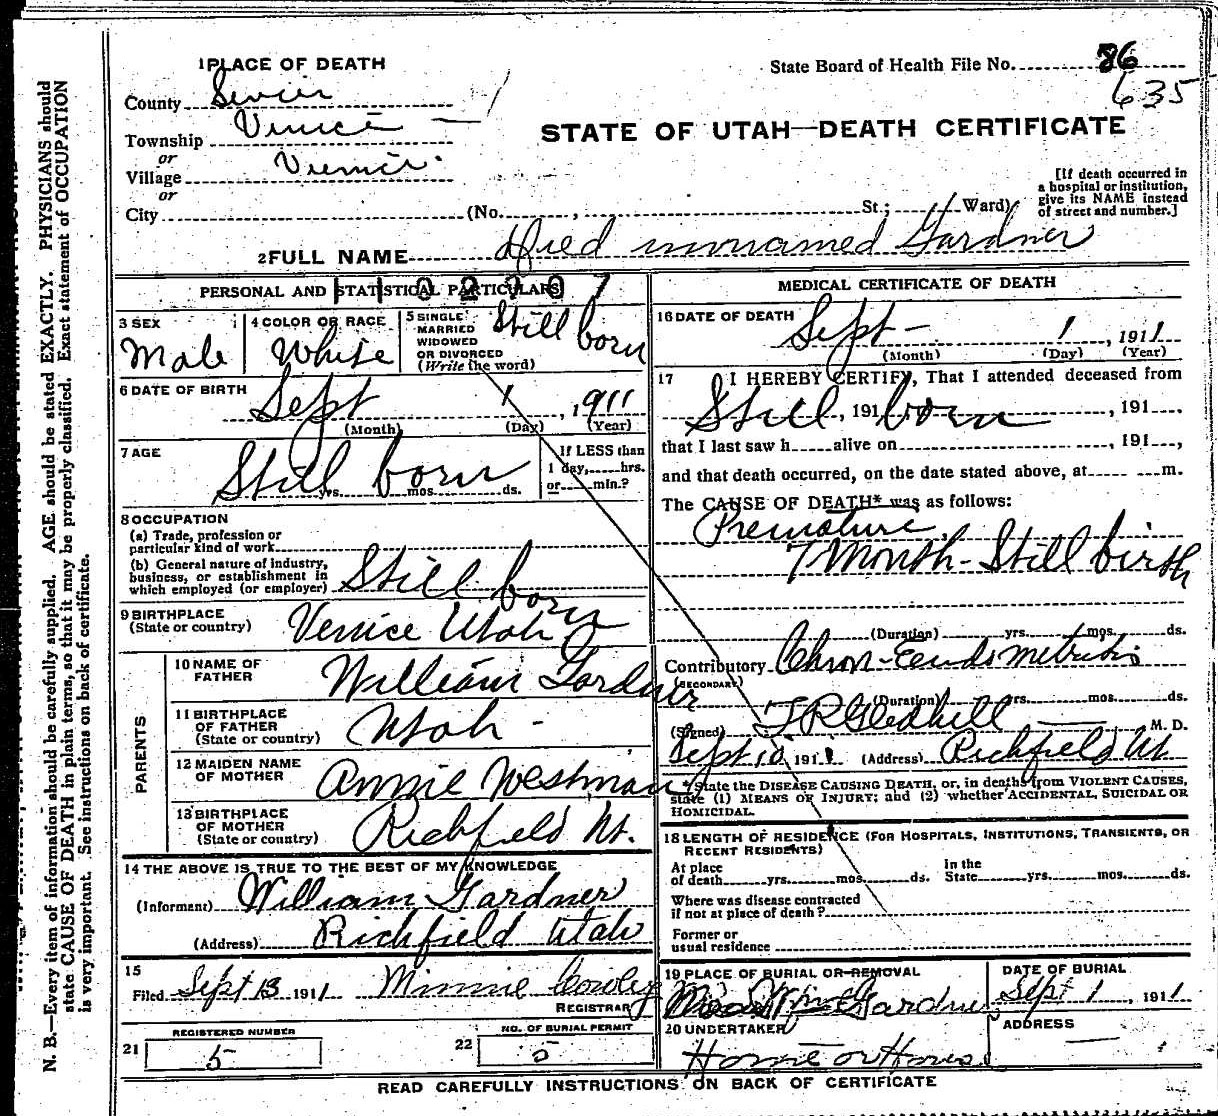 1 PLACE OF DEATH
State Board of Health File No. 86
635
County Sevier
Township Venice
or
Village Venice
or
City (No. , St.; Ward)
STATE OF UTAH—DEATH CERTIFICATE
[If death occurred in
a hospital or institution,
give its NAME instead
of street and number.]
2 FULL NAME Died unnamed Gardner
PERSONAL AND STATISTICAL PARTICULARS
3 SEX
Male
4 COLOR OR RACE
White
5 SINGLE
MARRIED
WIDOWED
OR DIVORCED
(Write the word)
Still born
6 DATE OF BIRTH
Sept 1, 1911
(Month) (Day) (Year)
7 AGE
Still born
yrs. mos. ds.
If LESS than
1 day, hrs.
or min.?
8 OCCUPATION
(a) Trade, profession or
particular kind of work
(b) General nature of industry,
business, or establishment in
which employed (or employer) Still born
9 BIRTHPLACE
(State or country) Venice Utah
PARENTS
10 NAME OF
FATHER William Gardner
11 BIRTHPLACE
OF FATHER
(State or country) Utah -
12 MAIDEN NAME
OF MOTHER Annie Westman
13 BIRTHPLACE
OF MOTHER
(State or country) Richfield Ut.
14 THE ABOVE IS TRUE TO THE BEST OF MY KNOWLEDGE
(Informant) William Gardner
(Address) Richfield Utah
15
Filed Sept 13 1911 Minnie Cowley
REGISTRAR
REGISTERED NUMBER
21 5
NO. OF BURIAL PERMIT
22 5
MEDICAL CERTIFICATE OF DEATH
16 DATE OF DEATH
Sept - 1, 1911
(Month) (Day) (Year)
17 I HEREBY CERTIFY, That I attended deceased from
Still, 191 born, 191
that I last saw h alive on , 191 ,
and that death occurred, on the date stated above, at m.
The CAUSE OF DEATH* was as follows:
Premature,
7 Month - Still birth
(Duration) yrs. mos. ds.
Contributory Chron - Eendometritis
(SECONDARY)
(Duration) yrs. mos. ds.
(Signed) T R Gledhill M. D.
Sept 10, 1911 (Address) Richfield Ut
*State the DISEASE CAUSING DEATH, or, in deaths from VIOLENT CAUSES,
state (1) MEANS OF INJURY; and (2) whether ACCIDENTAL, SUICIDAL OR
HOMICIDAL.
18 LENGTH OF RESIDENCE (FOR HOSPITALS, INSTITUTIONS, TRANSIENTS, OR
RECENT RESIDENTS)
At place
of death yrs. mos. ds.
In the
State yrs. mos. ds.
Where was disease contracted
if not at place of death?
Former or
usual residence
19 PLACE OF BURIAL OR REMOVAL
Gardner
DATE OF BURIAL
Sept 1, 1911
20 UNDERTAKER
Home or House
ADDRESS
READ CAREFULLY INSTRUCTIONS ON BACK OF CERTIFICATE
N. B.—Every item of information should be carefully supplied. AGE should be stated EXACTLY. PHYSICIANS should
state CAUSE OF DEATH in plain terms, so that it may be properly classified. Exact statement of OCCUPATION
is very important. See instructions on back of certificate.